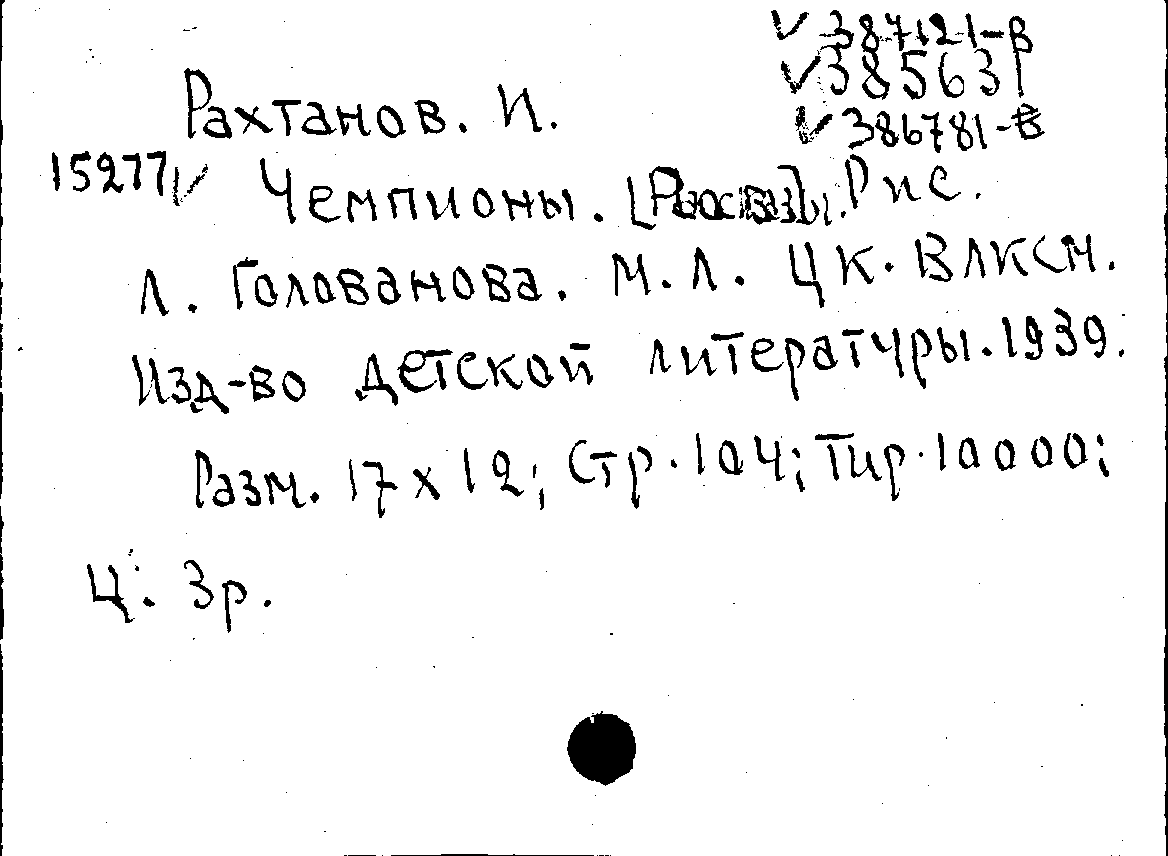 ✓ 387121-В
✓ 385631
✓ 386781-В
Рахтанов. И.
15277 ✓ Чемпионы. [Рассказы]. Рис.
Л. Голованова. М.Л. ЦК. ВЛКСМ.
Изд-во детской литературы. 1939.
Разм. 17 х 12; Стр. 104; Тир. 10000;
Ц. 3р.